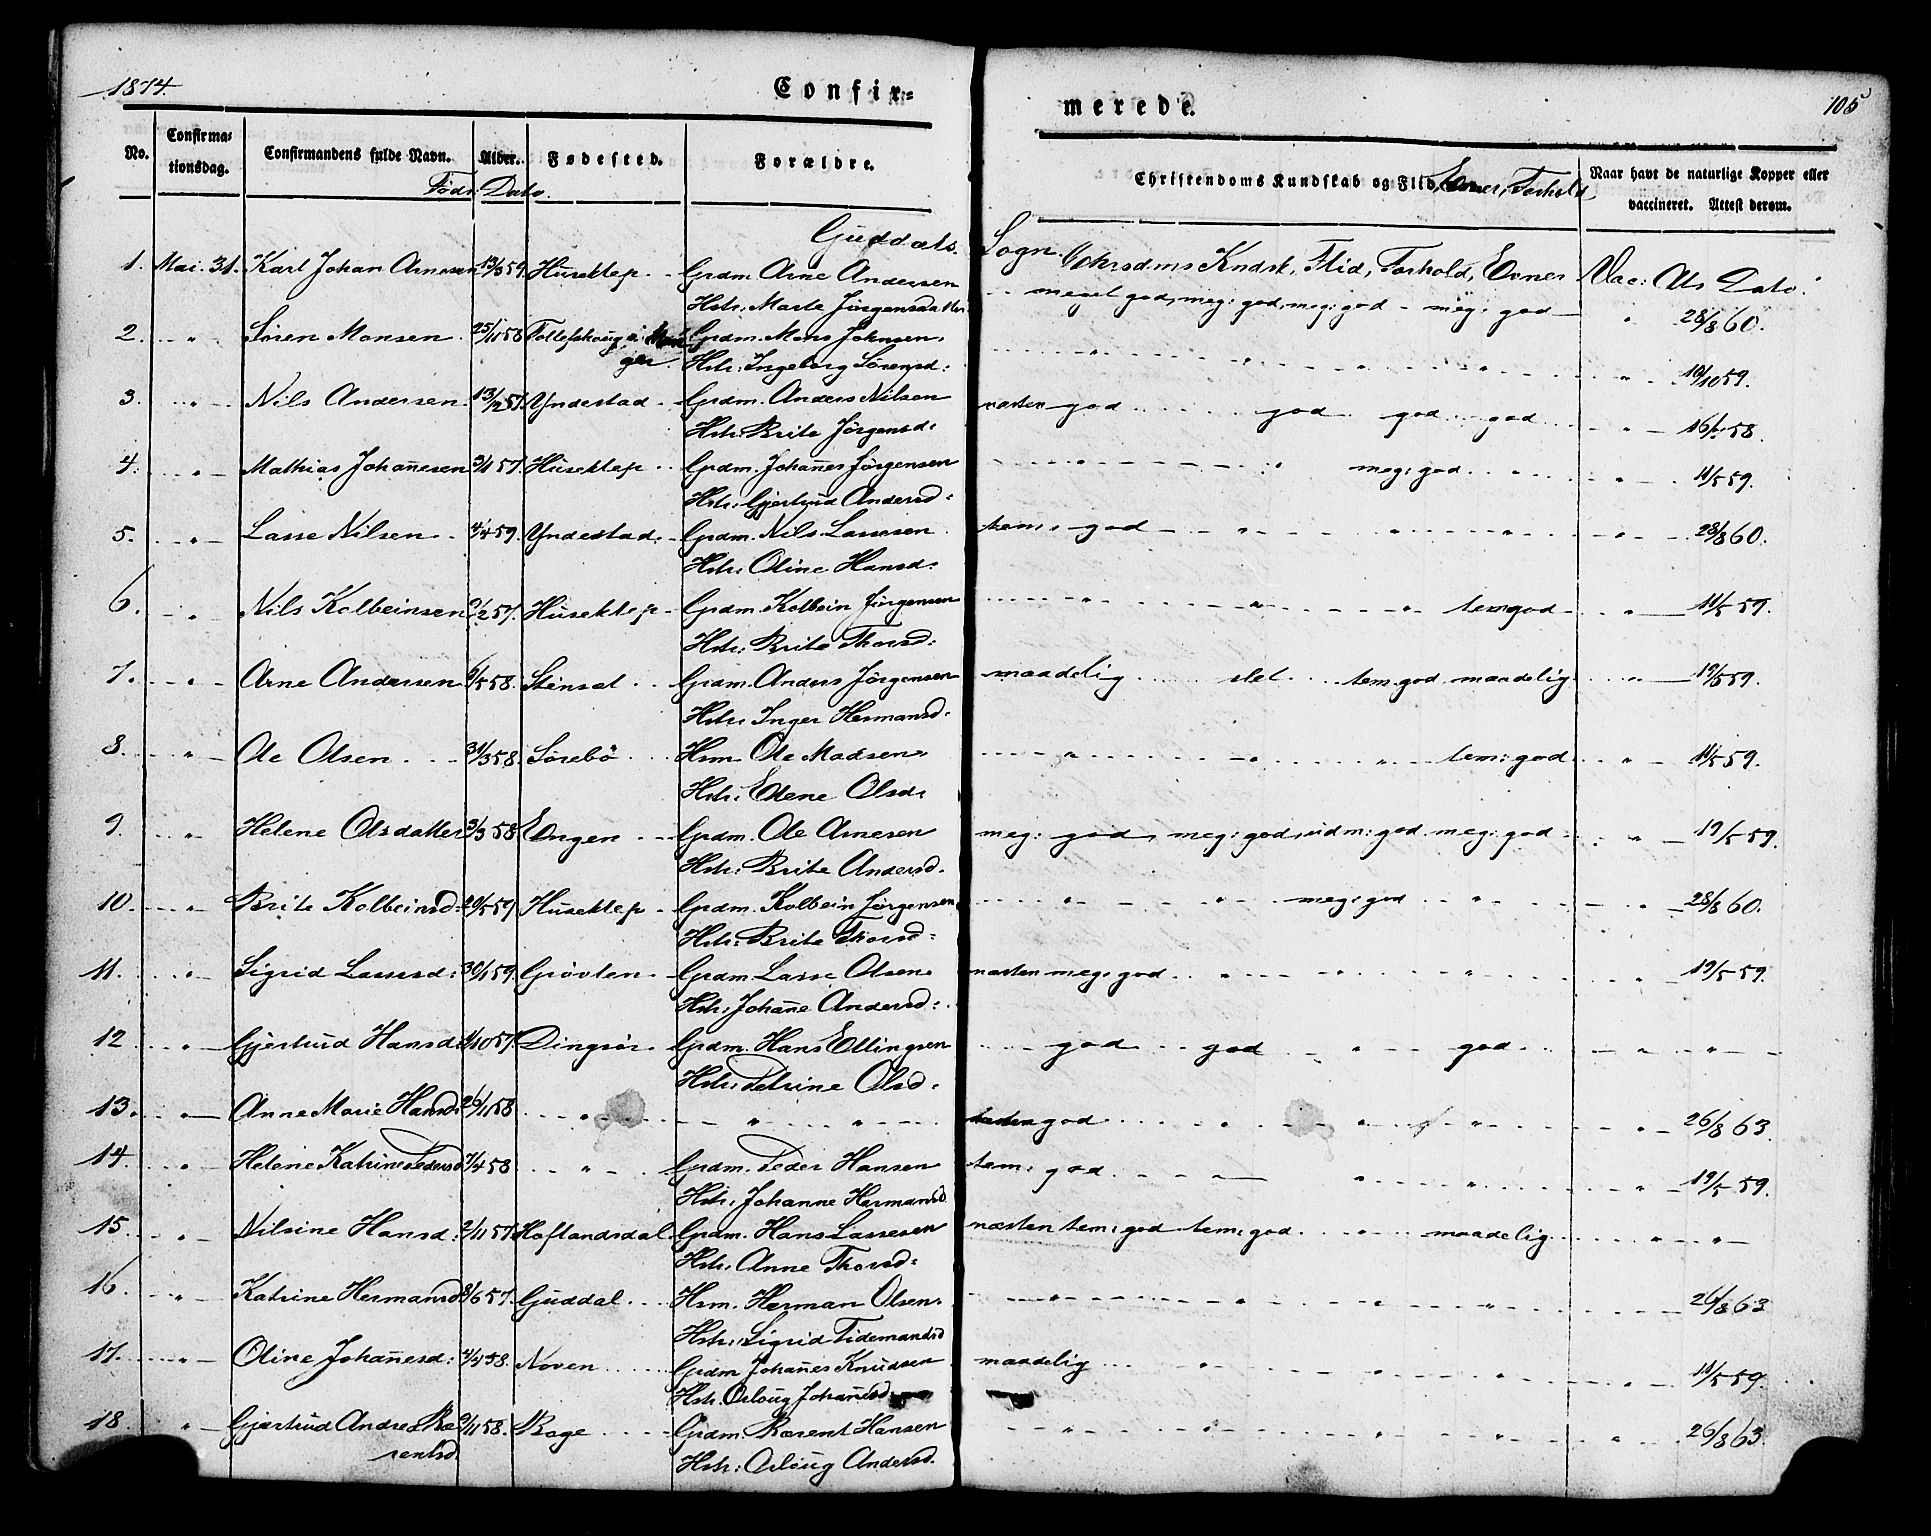 1874.
Confir-
merede.
105
No.
Confirma-
tionsdag.
Confirmandens fulde Navn.
Alder.
Fødested.
Forældre.
Føds: Dato.
Christendoms Kundskab og Flid, Evner, Forhold.
Naar havt de naturlige Kopper eller
vaccineret. Attest derom.
Guddals Sogn.
Chrsdms Kndsk, Flid, Forhold, Evner Vac: Ats Dato:
1. Mai. 31. Karl Johan Arnesen 13/3 59. Huseklep Grdm. Arne Andersen meget god, meg: god, meg: god meg: god " 28/8 60.
Hstr: Marte Jørgensdatter
2. " Søren Monsen 25/11 58 Tollefskoug i Grdm. Mons Johnsen " " " " " 10/10 59.
ger. Hstr: Ingeborg Sørensd:
3. " Nils Andersen 13/12 57. Yndestad Grdm. Anders Nilsen næsten god god god god " 16/5 58.
Hstr: Brite Jørgensd:
4. " Mathias Johannesen 3/1 57. Huseklep Grdm. Johannes Jørgensen " " meg: god " " 11/5 59.
Hstr: Gjertrud Andersd:
5. " Lasse Nilsen 4/4 59. Yndestad Grdm. Nils Lassesen tem: god " " " " 28/8 60.
Hstr: Oline Hansd:
6. " Nils Kolbeinsen 9/2 57. Huseklep Grdm. Kolbein Jørgensen " " " tem: god " 11/5 59.
Hstr: Brite Thorsd:
7. " Arne Andersen 6/5 58. Stensæt Grdm. Anders Jørgensen maadelig slet tem: god maadelig " 19/5 59.
Hstr: Inger Hermansd:
8. " Ole Olsen 31/3 58. Sørebø Hsm Ole Madsen " " " tem: god " 11/5 59.
Hstr: Elene Olsd:
9. " Helene Olsdatter 3/3 58 Engen Grdm. Ole Arnesen meg: god, meg: god, udm: god meg: god " 19/5 59.
Hstr: Brite Andersd.
10. " Brite Kolbeinsd: 29/5 59 Huseklep Grdm. Kolbein Jørgensen " " meg: god " " 28/8 60.
Hstr: Brite Thorsd:
11. " Sigrid Lassesd: 30/1 59. Grøvlen Grdm. Lasse Olsen næsten meg: god " " " " 19/5 59.
Hstr: Johanne Andersd:
12 " Gjertrud Hansd: 1/10 57. Dingsør Grdm. Hans Ellingsen god god " god " "
Hstr: Petrine Olsd:
13. " Anne Marie Hansd: 26/11 58 " " " næsten god " " " " 26/8 63.
14. " Helene Katrine Pedersd 7/4 58 " Grdm. Peder Hansen tem: god " " " " 19/5 59.
Hstr: Johanne Hermansd
15 " Nilsine Hansd: 2/11 57 Hoflandsdal Grdm. Hans Lassesen næsten tem: god tem: god " maadelig " "
Hstr: Anne Thorsd:
16 " Katrine Hermansd 8/6 57. Guddal Hsm. Herman Olsen " " " " " 26/8 63
Hstr: Sigrid Tidemandsd
17. " Oline Johannesd: 4/4 58. Noven Grdm Johanes Knudsen maadelig " " " " 11/5 59.
Hstr. Oseloug Johansd
18 " Gjertrud Andrea Ba 9/11 58. Bøge Grdm. Barent Hansen " " " " " 26/8 63.
rentsd Hstr: Asloug Andersd.